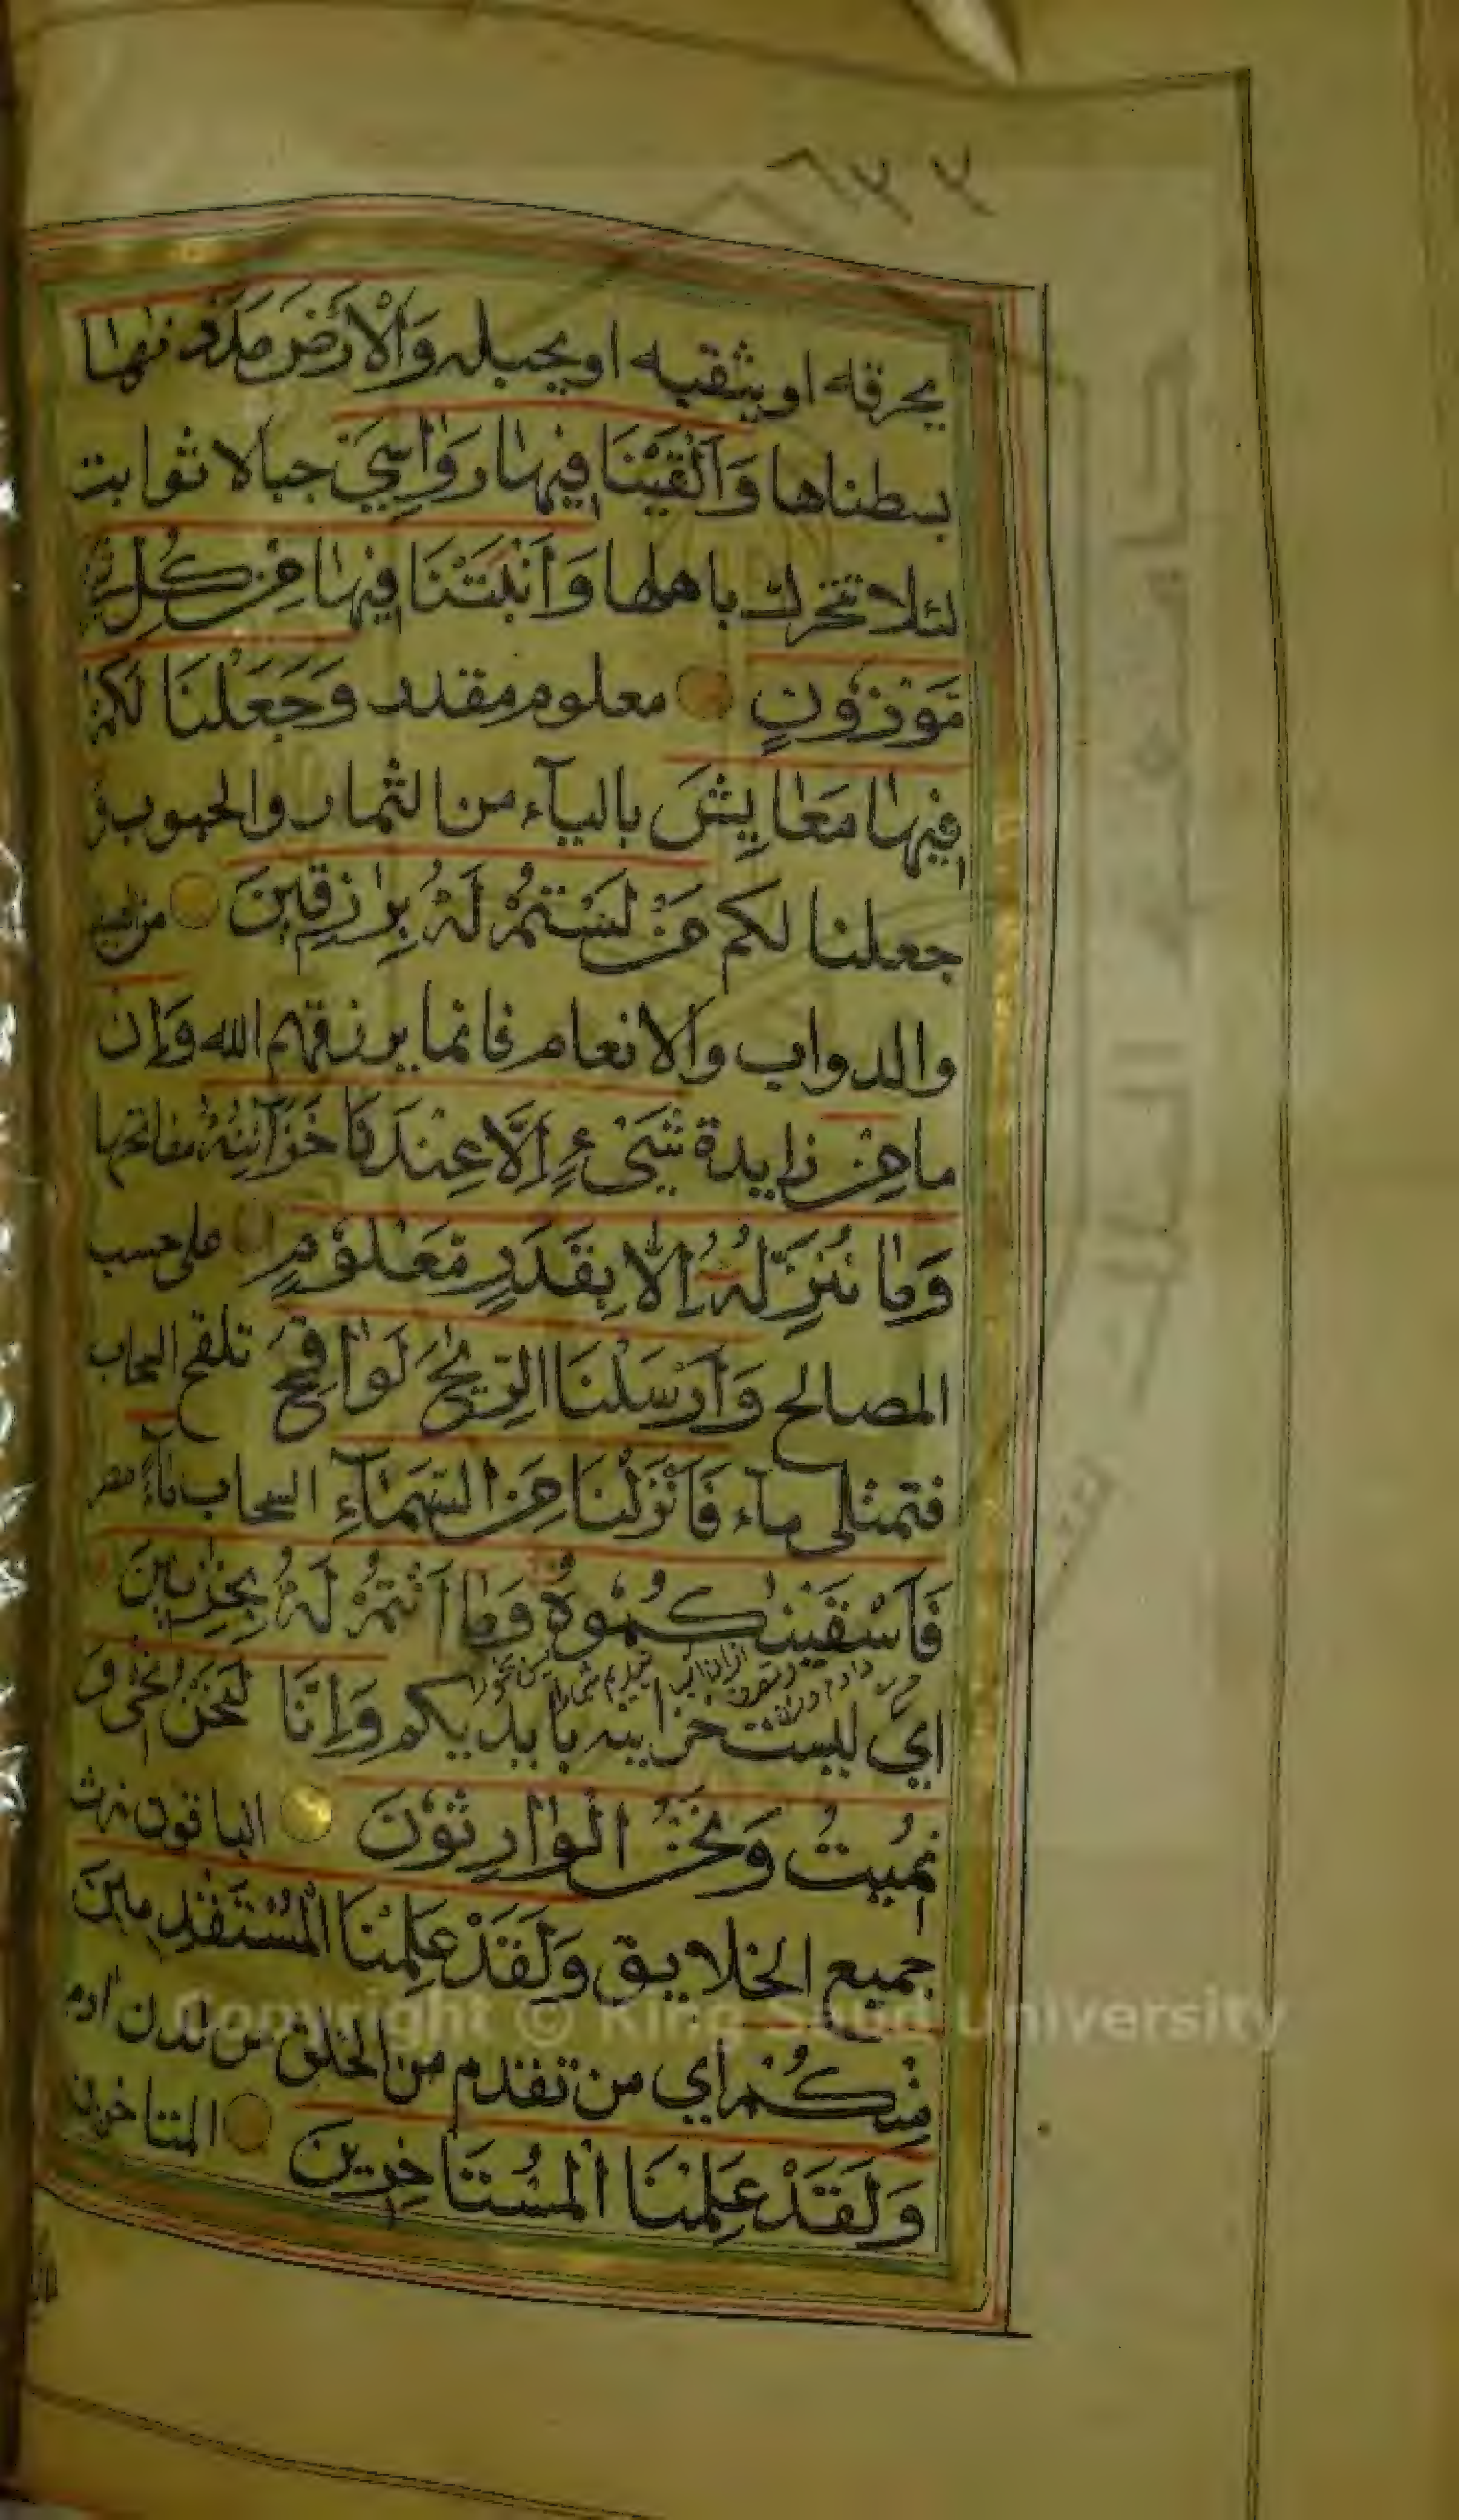 ٦٣٣
يحرقه او يثقبه او يخبله وَالْاَرْضَ مَدَدْنٰهَا
بسطناها وَاَلْقَيْنَا فِيْهَا رَوَاسِيَ جبالا ثوابت
لئلا تتحرك باهلها وَاَنْبَتْنَا فِيْهَا مِنْ كُلِّ شَيْءٍ
مَوْزُوْنٍ معلوم مقدر وَجَعَلْنَا لَكُمْ
فِيْهَا مَعَايِشَ باليآء من الثمار والحبوب وَ
جعلنا لكم مَنْ لَسْتُمْ لَهُ بِرَازِقِيْنَ من العبيد
والدواب والانعام فانما يرزقهم الله وَاِنْ
ما مِنْ زايدة شَيْءٍ اِلَّا عِنْدَنَا خَزَآئِنُهُ مفاتحها
وَمَا نُنَزِّلُهُ اِلَّا بِقَدَرٍ مَعْلُوْمٍ على حسب
المصالح وَاَرْسَلْنَا الرِّيٰحَ لَوَاقِحَ تلقح السحاب
فتمتلى مآء فَاَنْزَلْنَا مِنَ السَّمَآءِ السحاب مَآءً مطر
فَاَسْقَيْنٰكُمُوْهُ وَمَا اَنْتُمْ لَهُ بِخٰزِنِيْنَ
اي ليست خزاينه بايديكم وَاِنَّا لَنَحْنُ نُحْيٖ وَ
نُمِيْتُ وَنَحْنُ الْوَارِثُوْنَ الباقون نرث
جميع الخلايق وَلَقَدْ عَلِمْنَا الْمُسْتَقْدِمِيْنَ
مِنْكُمْ اي من تقدم من الخلق من لدن ادم
وَلَقَدْ عَلِمْنَا الْمُسْتَاخِرِيْنَ المتاخرين
Copyright © King Saud University